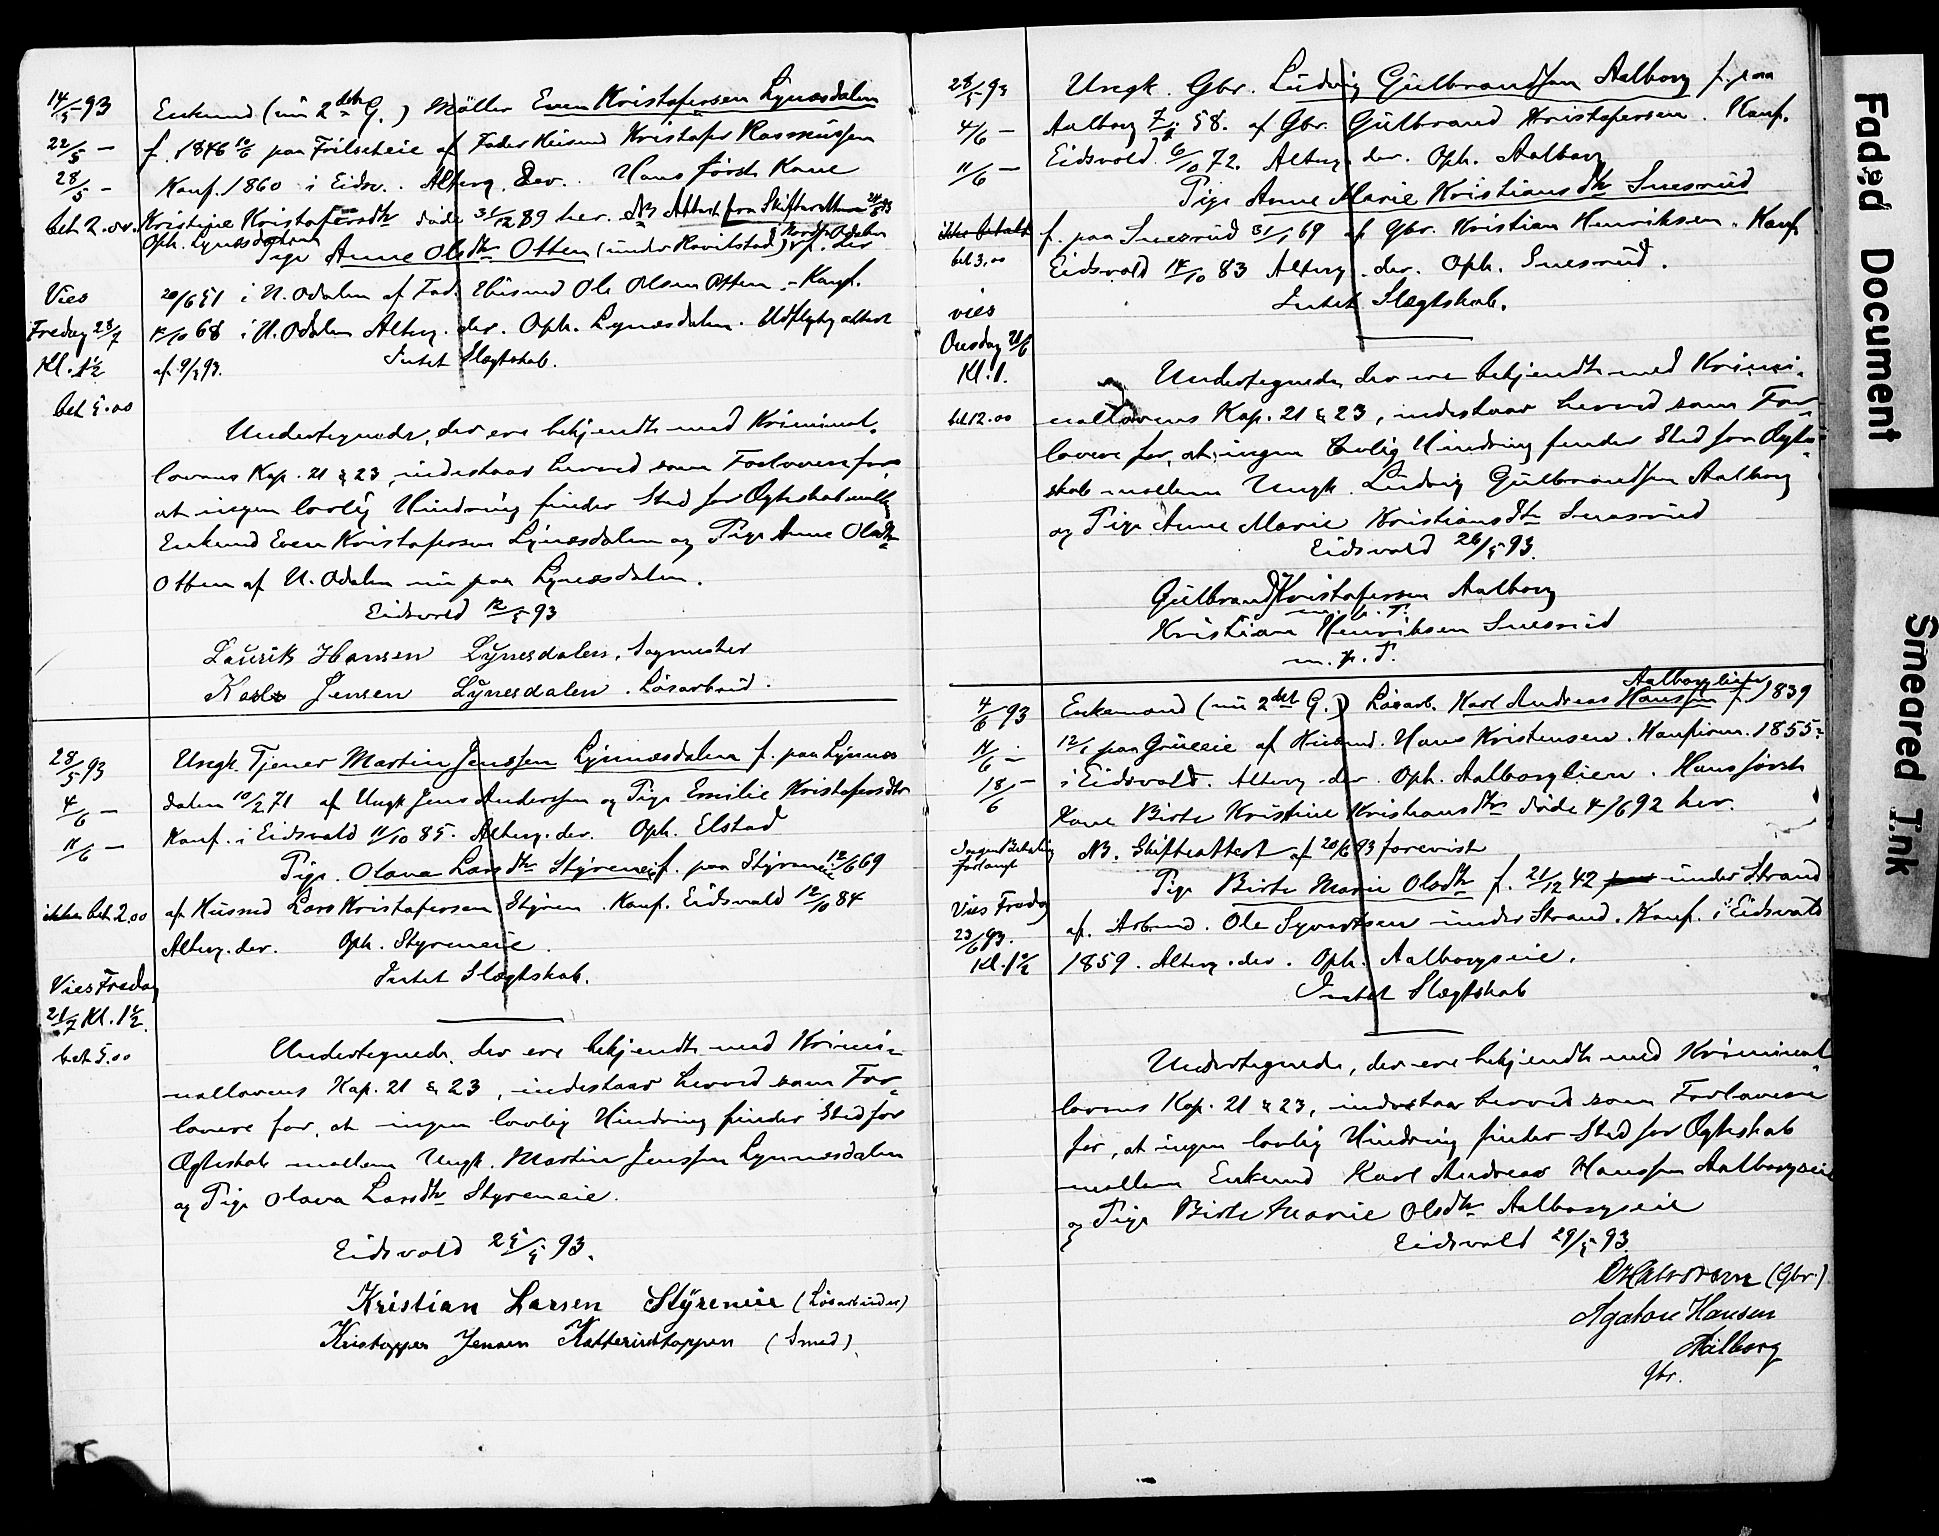 14/5 93
22/5 —
28/5 —
bet. 2.00.
Vies
Fredag 28/7
Kl. 1½
bet 5.00
Enkemd (nu 2det G.) Møller Even Kristofersen Lynæsdalen
f. 1846 10/6 paa Frilseteie af Fader Husmd Kristofer Rasmussen
Konf. 1860 i Eidsv. Alterg. der. Hans første Kone
Kristine Kristofersdtr døde 31/12 89 her. NB Attest fra Skifteretten
Oph. Lynæsdalen
Pige Anne Olsdtr Otten (under Kovilstad) f. der
20/6 51 i N. Odalen af Fad. Husmd Ole Olsen Otten. Konf.
68 i N. Odalen Alterg. der. Oph. Lynæsdalen. Udflytg. attest
af 93. Intet Slægtskab.
Undertegnede, der ere bekjendte med Kriminal-
lovens Kap. 21 & 23, indestaar herved som Forlovere for,
at ingen lovlig Hindring finder Sted for Ægteskab mellem
Enkemd Even Kristofersen Lynæsdalen og Pige Anne Olsdtr
Otten af N. Odalen nu paa Lynæsdalen.
Eidsvold 12/5 93
Laurits Hansen Lynesdalen, Sagmester
Karl Jensen Lynesdalen. Løsarbeid.
28/5 93
4/6 —
11/6 —
ikke bet. 2.00
Vies Fredag
21/7 Kl. 1½.
bet 5.00
Ungk. Tjener Martin Jenssen Lynnæsdalen f. paa Lynnæs
dalen 10/2 71 af Ungk Jens Anderssen og Pige Emilie Kristofersdtr
Konf. i Eidsvold 11/10 85. Alterg. der. Oph. Elstad
Pige. Olava Larsdtr Styreneie f. paa Styreneie 12/6 69
af Husmd Lars Kristofersen Styren. Konf. Eidsvold 12/10 84
Alterg. der. Oph. Styreneie.
Intet Slægtskab.
Undertegnede, der ere bekjendte med Krimi-
nallovens Kap. 21 & 23, indestaar herved som For-
lovere for, at ingen lovlig Hindring finder Sted for
Ægteskab mellem Ungk. Martin Jenssen Lynnæsdalen
og Pige Olava Larsdtr Styreneie.
Eidsvold 25/5 93.
Kristian Larsen Styreneie (Løsarbeider)
Kristoffer Jensen (Smed).
28/5 93
4/6 —
11/6 —
ikke betalt
bet 3,00
vies
Onsdag 21/6
Kl. 1.
bet 12.00
Ungk. Gbr. Ludvig Gulbrandsen Aalborg f. paa
Aalborg 58. af Gbr. Gulbrand Kristofersen. Konf.
Eidsvold 6/10 72. Alterg. der. Oph. Aalborg
Pige Anne Marie Kristiansdtr Snesrud
f. paa Snesrud 31/1 69 af Gbr. Kristian Henriksen. Konf.
Eidsvold 14/10 83 Alterg. der. Oph. Snesrud.
Intet Slægtskab.
Undertegnede, der ere bekjendte med Krimi-
nallovens Kap. 21 & 23, indestaar herved som For-
lovere for, at ingen lovlig Hindring finder Sted for Ægte-
skab mellem Ungk. Ludvig Gulbrandsen Aalborg
og Pige Anne Marie Kristiansdtr Snesrud
Eidsvold 26/5 93.
Gulbrand Kristofersen Aalborg
m. p. P.
Kristian Henriksen Snesrud
m. p. P.
4/6 93
11/6 —
18/6 —
Ingen Betaling
forlangt
Vies Fredag
23/6 93.
Kl. 1½
Aalborglien
Enkemand (nu 2det G.) Løsarb. Karl Andreas Hanssen f. 1839
12/1 paa Grueeie af Husmd. Hans Kristensen. Konfirm. 1855
i Eidsvold. Alterg. der. Oph. Aalborglien. Hans første
Kone Birte Kristine Kristiansdtr døde 4/6 92 her.
NB. Skifteattest af 20/6 93 forevist
Pige Birte Marie Olsdtr f. 21/12 42 under Strand
af. Arbmd. Ole Syvertsen under Strand. Konf. i Eidsvold
1859. Alterg. der. Oph. Aalborgseie.
Intet Slægtskab
Undertegnede, der ere bekjendte med Kriminal
lovens Kap. 21 & 23, indestaar herved som Forlovere
for, at ingen lovlig Hindring finder Sted for Ægteskab
mellem Enkemd Karl Andreas Hanssen Aalborgseie
og Pige Birte Marie Olsdtr Aalborgseie
Eidsvold 29/5 93.
O Halvorsen (Gbr.)
Agaton Hansen
Aalborg
Gbr.
Faded Document
Smeared Ink